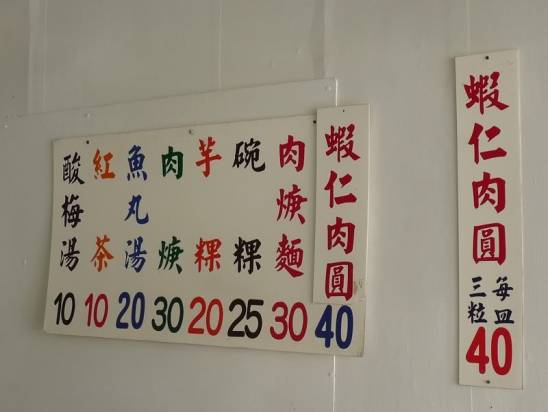 蝦仁肉圓
每皿
三粒
40
蝦仁肉圓 40
肉焿麵 30
碗粿 25
芋粿 20
肉焿 30
魚丸湯 20
紅茶 10
酸梅湯 10